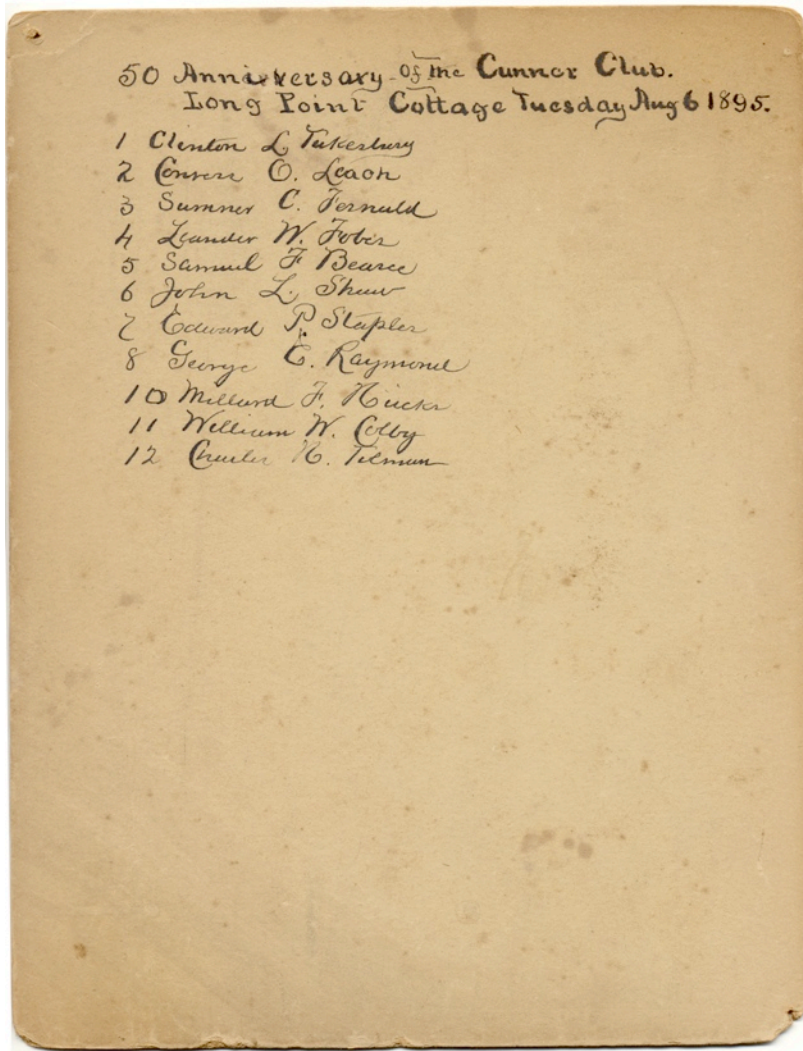 50 Anniversary of the Cunner Club.
Long Point Cottage Tuesday Aug 6 1895.
1 Clinton L. Tukesbury
2 Convers O. Leach
3 Sumner C. Fernald
4 Leander W. Fobes
5 Samuel F Bearce
6 John L. Shaw
7 Edward P. Staples
8 George E. Raymond
10 Millard F. Hicks
11 William W. Colby
12 Charles H. Tolman